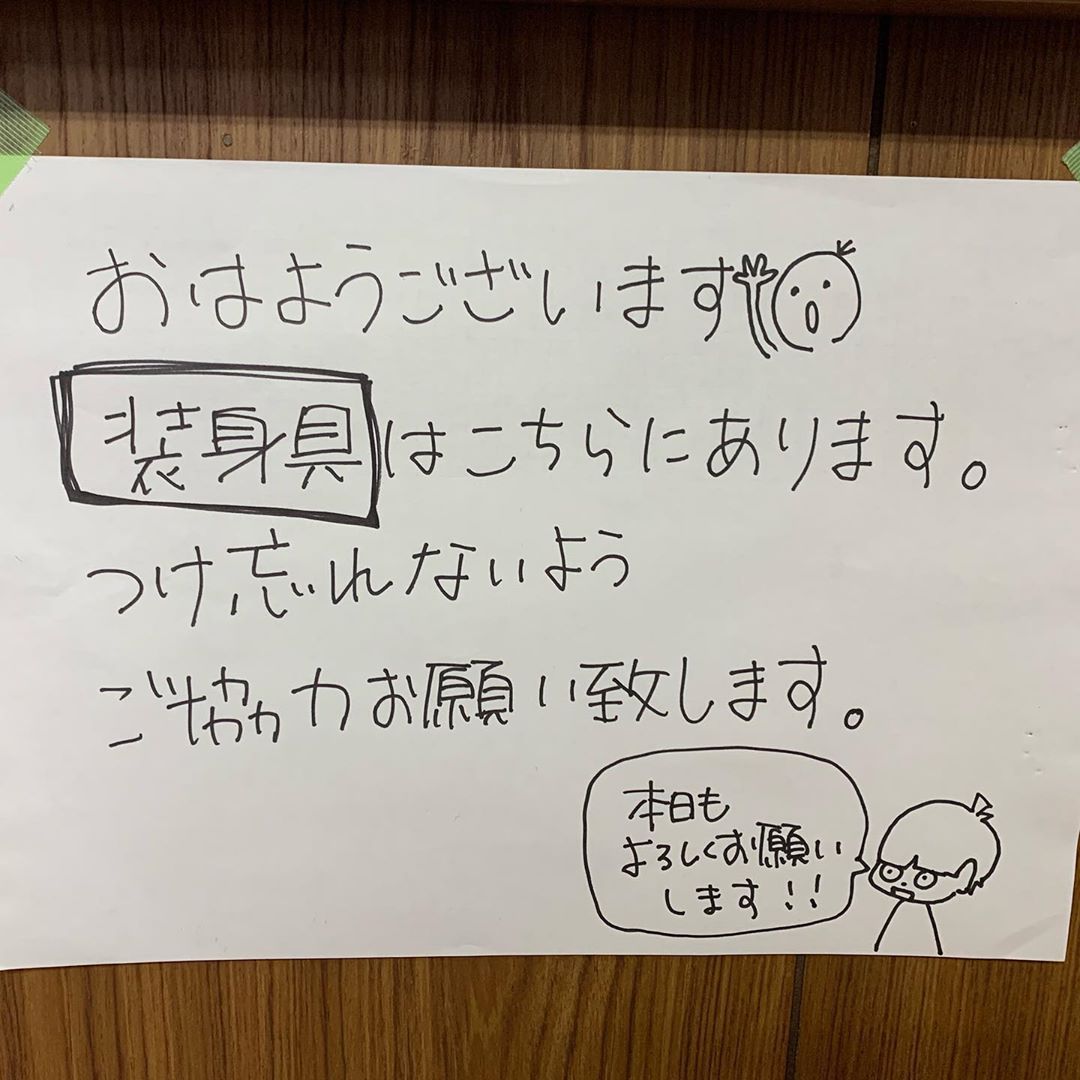 おはようございます
装身具はこちらにあります。
つけ忘れないよう
ご協力お願い致します。
本日も
よろしくお願い
します!!